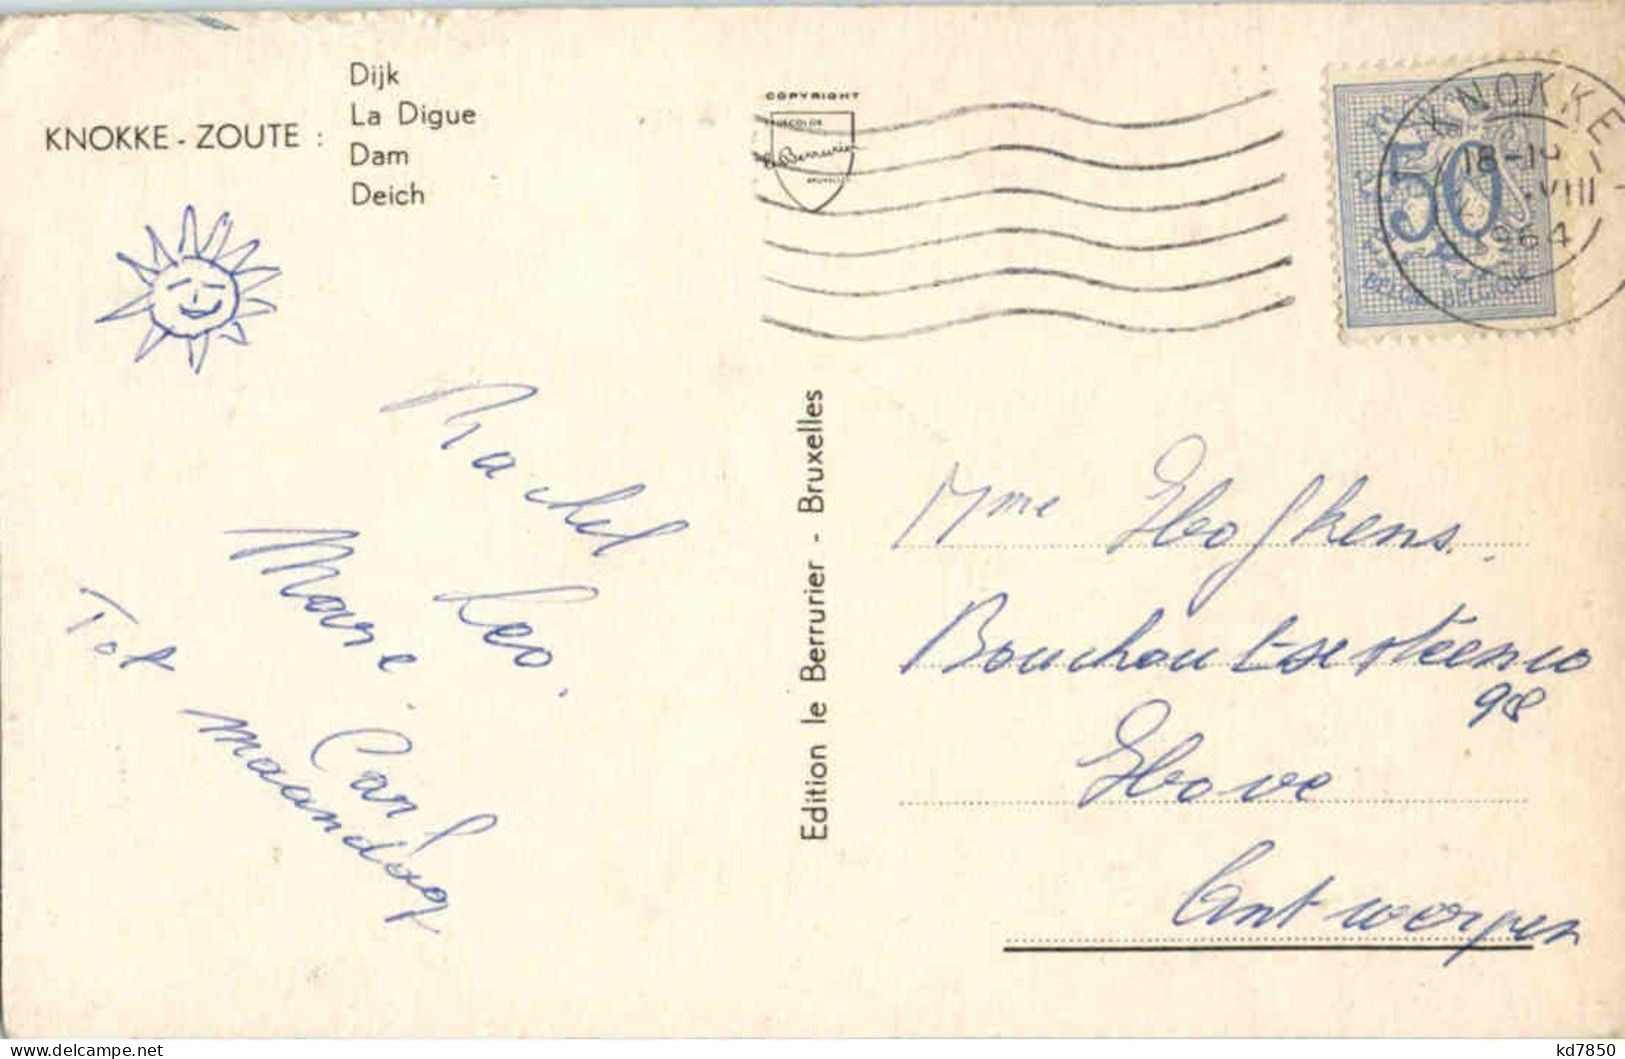 KNOKKE - ZOUTE :
Dijk
La Digue
Dam
Deich
Rachel
Leo.
Marc.
Carl
Tot
maandag
Edition le Berrurier - Bruxelles
COPYRIGHT
Berrurier
BRUXELLES
KNOKKE
18-19
VIII
1964
50
BELGIE BELGIQUE
Mme Hofkens.
Bouchoutsesteenw
98
Hove
Antwerpen
kd7850